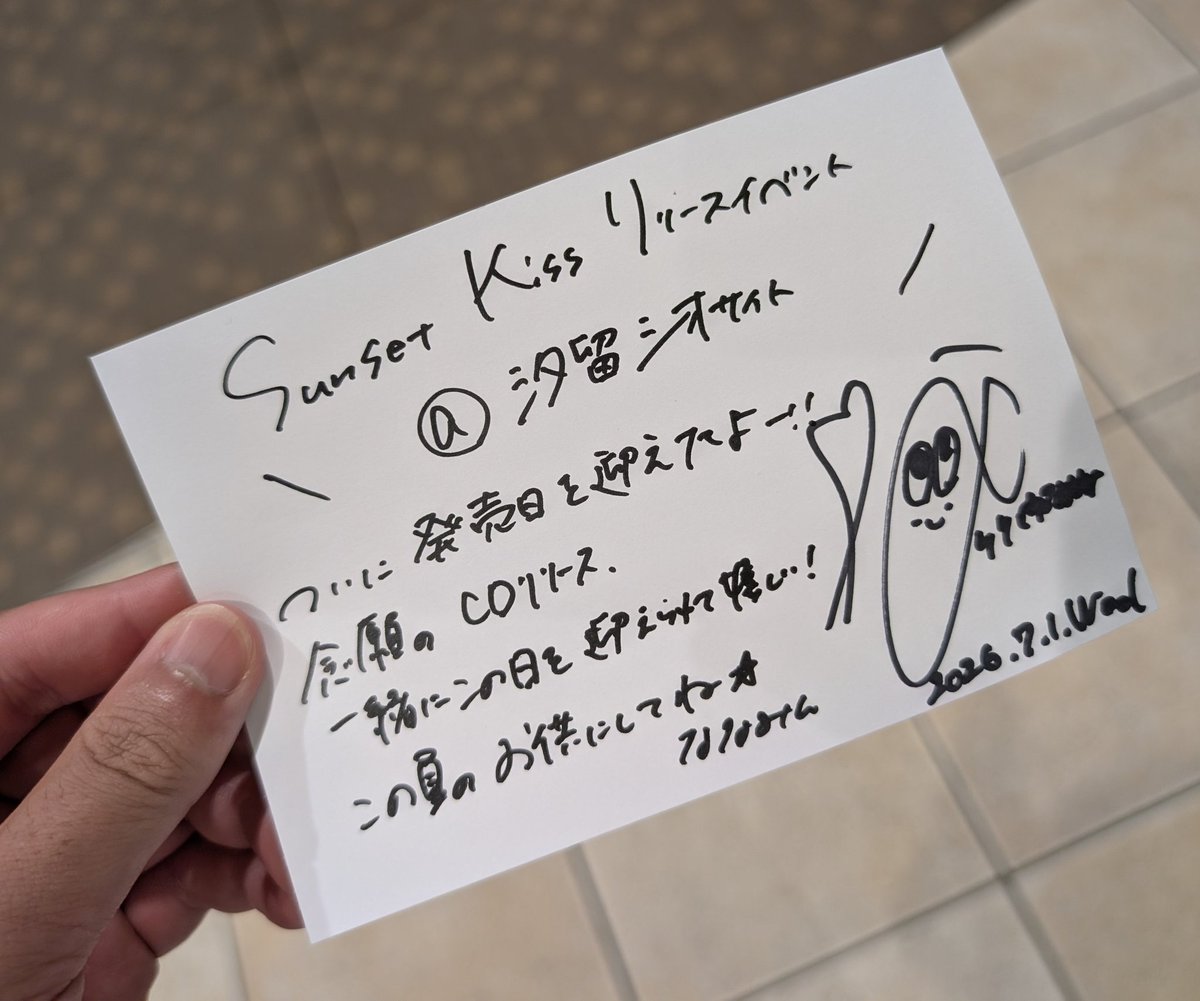 Sunset Kiss リリースイベント
@ 汐留シオサイト
ついに発売日を迎えたよー!!
念願のCDリリース.
一緒にこの日を迎えられて嬉しい!
この夏のお供にしてね☆
2026.7.1.Wed